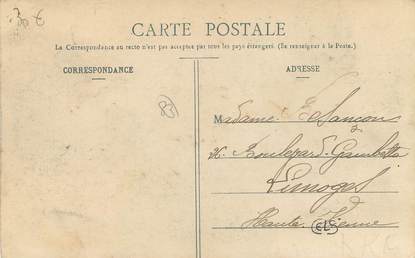 CARTE POSTALE
La Correspondance au recto n'est pas acceptée par tous les pays étrangers. (Se renseigner à la Poste.)
CORRESPONDANCE
ADRESSE
Madame E
Boulevard Gambetta
Limoges
Haute Vienne
CLC